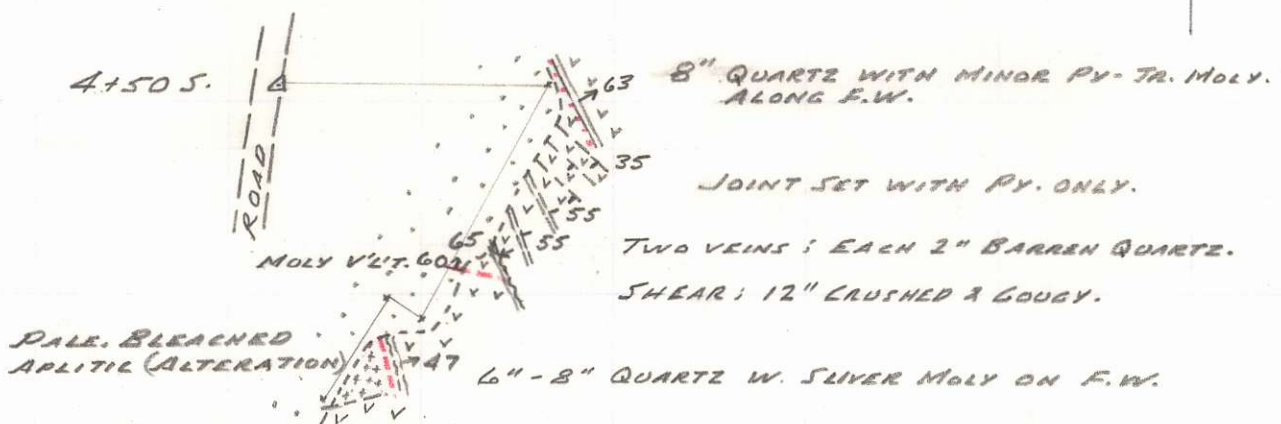 4+50 S.
ROAD
63
8" QUARTZ WITH MINOR PY- TR. MOLY.
ALONG F.W.
35
JOINT SET WITH PY. ONLY.
55
65
55
TWO VEINS; EACH 2" BARREN QUARTZ.
MOLY V'L'T. 60
SHEAR; 12" CRUSHED & GOUGY.
PALE. BLEACHED
APLITIC (ALTERATION)
47
6"-8" QUARTZ W. SLIVER MOLY ON F.W.